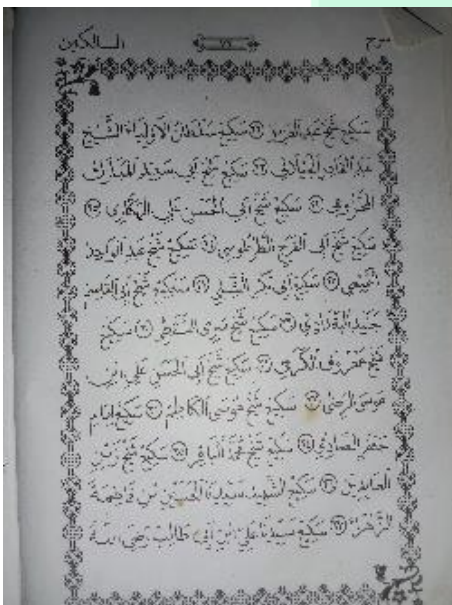 السالكين
سكيڠ شيخ عبد العزيز سكيڠ سلطان الاولياء الشيخ
عبد القادر الجيلاني سكيڠ شيخ ابي سعيد المبارك
المخزومي سكيڠ شيخ ابي الحسن علي الهكاري
سكيڠ شيخ ابي الفرج الطرطوسي سكيڠ شيخ عبد الواحد
التميمي سكيڠ ابي بكر الشبلي سكيڠ شيخ ابو القاسم
جنيد سكيڠ شيخ سري السقطي سكيڠ
شيخ معروف الكرخي سكيڠ شيخ ابي الحسن علي ابن
موسى الرضى سكيڠ شيخ موسى الكاظم سكيڠ امام
جعفر الصادق سكيڠ شيخ محمد الباقر سكيڠ شيخ زين
العابدين سكيڠ الشهيد سيدنا الحسين بن فاطمة
الزهراء سكيڠ سيدنا علي ابن ابي طالب رضي الله